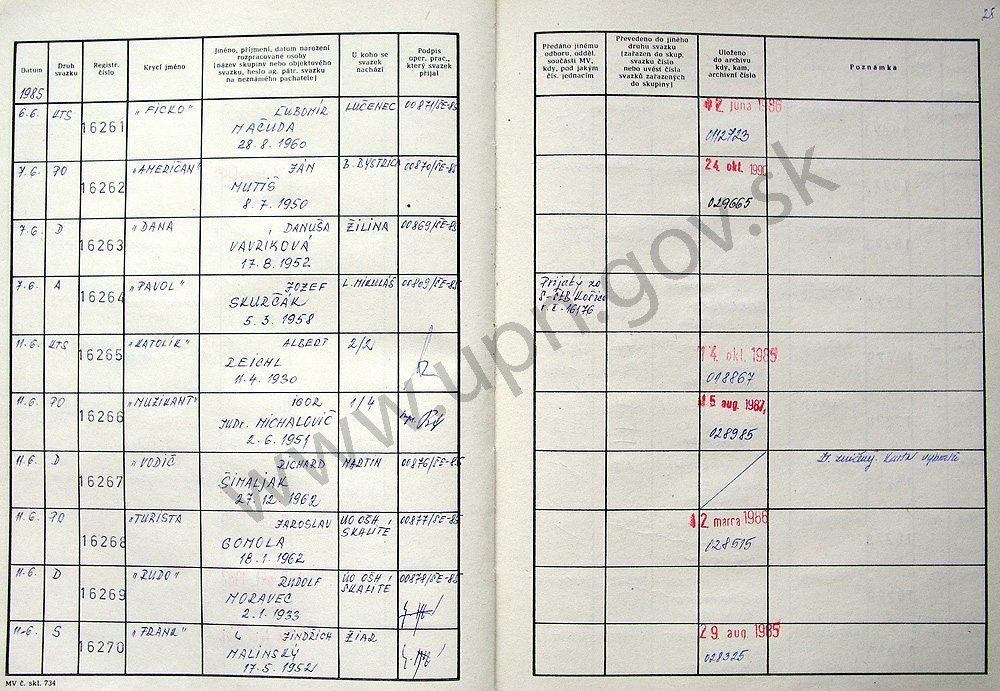 28
Datum
Druh svazku
Registr. číslo
Krycí jméno
Jméno, příjmení, datum narození
rozpracované osoby
(název skupiny nebo objektového
svazku, heslo ag. pátr. svazku
na neznámého pachatele)
U koho se
svazek
nachází
Podpis
oper. prac.,
který svazek
přijal
Předáno jinému
odboru, odděl.
součásti MV,
kdy, pod jakým
čís. jednacím
Převedeno do jiného
druhu svazku
(zařazen do skup.
svazku číslo
nebo uvést číslo
svazků zařazených
do skupiny)
Uloženo
do archivu
kdy, kam,
archivní číslo
Poznámka
1985
6.6. KTS 16261 "FICKO" ĽUBOMÍR LUČENEC 00871/SE-85 12 júna 1986
MAČUDA
28.8.1960
0112723
7.6. PO 16262 "AMERIČAN" JÁN B. BYSTRICA 00870/SE-85 24. okt. 1990
MUTIŠ
8.7.1950
029665
7.6. D 16263 "DANA DANUŠA ŽILINA 00869/SE-85
VAVRIKOVÁ
17.8.1952
7.6. A 16264 "PAVOL" JOZEF L. MIKULÁŠ 00809/SE-85 Prijatý zo
SKURČÁK Š-ŠtB Košice
5.3.1958 r.č.-16176
11.6. KTS 16265 "KATOLÍK" ALBERT 2/2 14. okt. 1985
REICHL
11.4.1930
018867
11.6. PO 16266 "MUZIKANT" IGOR 1/4 15 aug. 1987
JUDr. MICHALOVIČ
2.6.1951
028985
11.6. D 16267 "VODIČ" RICHARD MARTIN 00876/SE-85
ŠIMALJAK
27.12.1962
11.6. PO 16268 "TURISTA JAROSLAV ÚO OŠH 00877/SE-85 12. marca 1986
GOMOLA SKALITE
18.1.1962
028515
11.6. D 16269 "RUDO" RUDOLF ÚO OŠH 00878/SE-85
MORAVEC SKALITE
2.1.1933
11.6. S 16270 "FRANK" JINDŘICH ŽIAR 29 aug. 1985
MALINSKÝ
17.5.1952
028325
MV č. skl. 734
www.upn.gov.sk